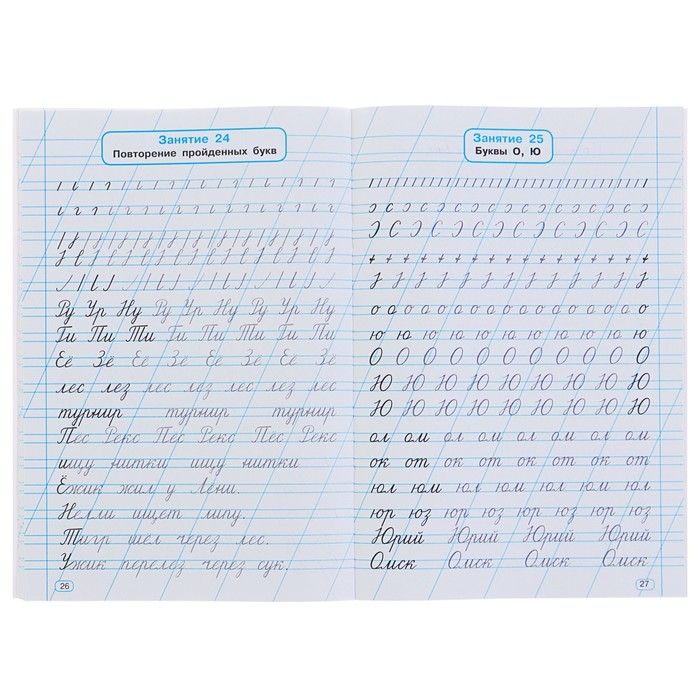 Занятие 24
Повторение пройденных букв
Ру Ур Ну Ру Ур Ну Ру Ур Ну
Ги Пи Ти Ги Пи Ти Ги Пи
Её Зе Её Зе Её Зе Её Зе
лес лез лес лез лес лез лес
турнир турнир турнир
Пёс Рекс Пёс Рекс Пёс Рекс
ищу нитки ищу нитки
Ёжик жил у Лёни.
Нелли ищет липу.
Тигр шёл через лес.
Ужик перелез через сук.
26
Занятие 25
Буквы О, Ю
с с с с с с с с с с с с с с с
С С С С С С С С С С С С С
о о о о о о о о о о о о о о о о о
ю ю ю ю ю ю ю ю ю ю ю
О О О О О О О О О О О
Ю Ю Ю Ю Ю Ю Ю Ю Ю
Ю Ю Ю Ю Ю Ю Ю Ю Ю
ол ом ол ом ол ом ол ом
ок от ок от ок от ок от
юл юм юл юм юл юм юл
юр юз юр юз юр юз юр юз
Юрий Юрий Юрий Юрий
Омск Омск Омск Омск
27